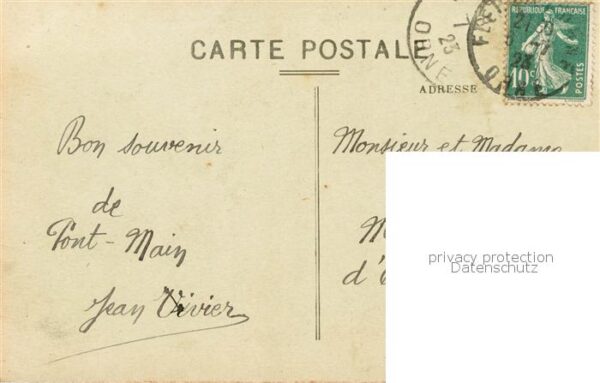 CARTE POSTALE
ADRESSE
ORNE
7
23
RÉPUBLIQUE FRANÇAISE
10c
POSTES
ORNE
Bon souvenir
de
Pont-Main
Jean Vivier
Monsieur et Madame
d'
privacy protection
Datenschutz